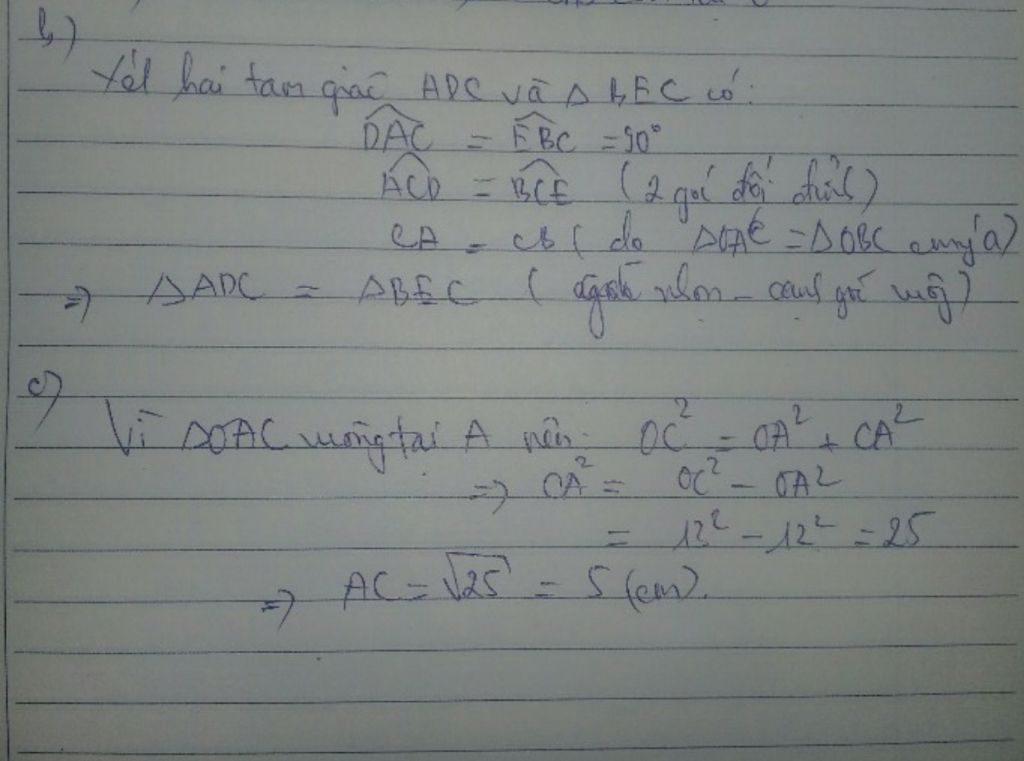 b)
Xét hai tam giác ADC và △ BEC có:
DAC = EBC = 90°
ACD = BCE (2 góc đối đỉnh)
CA = CB ( do △OAC = △OBC câu a)
=> △ADC = △BEC ( nhọn - cạnh góc vuông)
c)
Vì △OAC vuông tại A nên: OC² = OA² + CA²
=> CA² = OC² - OA²
= 13² - 12² = 25
=> AC = √25 = 5 (cm).